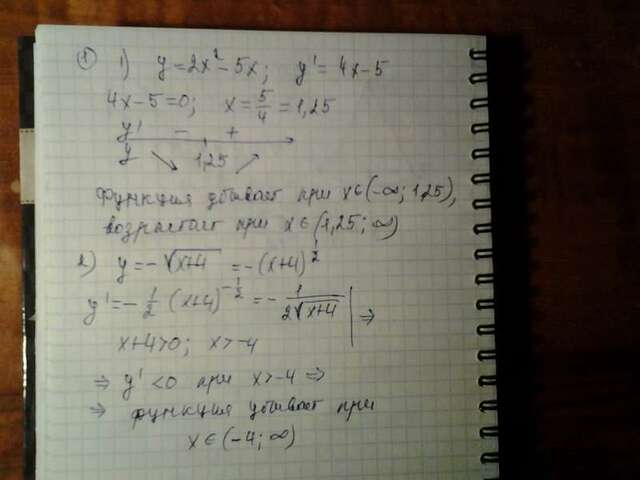 ① 1) y=2x²-5x; y'=4x-5
4x-5=0; x=5/4=1,25
y' - +
y ↘ 1,25 ↗
Функция убывает при x∈(-∞; 1,25),
возрастает при x∈(1,25; ∞)
2) y=-√(x+4) =-(x+4)^(1/2)
y'=-1/2 (x+4)^(-1/2) =- 1/(2√(x+4)) | ⇒
x+4>0; x>-4
⇒ y'<0 при x>-4 ⇒
⇒ функция убывает при
x∈(-4; ∞)